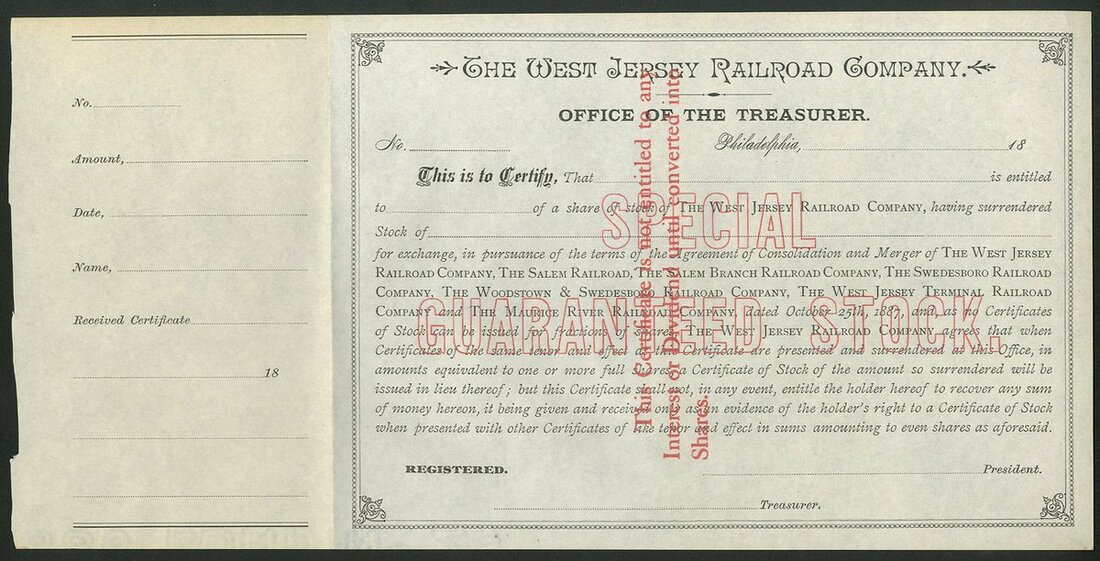 No.
Amount,
Date,
Name,
Received Certificate
18
THE WEST JERSEY RAILROAD COMPANY.
OFFICE OF THE TREASURER.
No. Philadelphia, 18
This is to Certify, That is entitled
to of a share of stock of THE WEST JERSEY RAILROAD COMPANY, having surrendered
Stock of
for exchange, in pursuance of the terms of the Agreement of Consolidation and Merger of THE WEST JERSEY
RAILROAD COMPANY, THE SALEM RAILROAD, THE SALEM BRANCH RAILROAD COMPANY, THE SWEDESBORO RAILROAD
COMPANY, THE WOODSTOWN & SWEDESBORO RAILROAD COMPANY, THE WEST JERSEY TERMINAL RAILROAD
COMPANY and THE MAURICE RIVER RAILROAD COMPANY, dated October 25th, 1887, and, as no Certificates
of Stock can be issued for fractions of shares, THE WEST JERSEY RAILROAD COMPANY agrees that when
Certificates of the same tenor and effect as this Certificate are presented and surrendered at this Office, in
amounts equivalent to one or more full shares, a Certificate of Stock of the amount so surrendered will be
issued in lieu thereof; but this Certificate shall not, in any event, entitle the holder hereof to recover any sum
of money hereon, it being given and received only as an evidence of the holder's right to a Certificate of Stock
when presented with other Certificates of like tenor and effect in sums amounting to even shares as aforesaid.
REGISTERED. President.
Treasurer.
SPECIAL
GUARANTEED STOCK.
This Certificate is not entitled to any
Interest or Dividend until converted into
Shares.